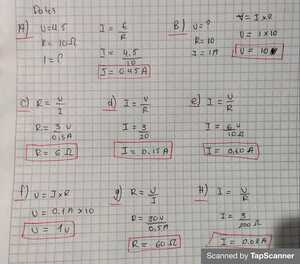 Datos
A) V=4.5
R= 10Ω
I = ?
I = E
R
I = 4.5
10
I = 0.45A
B) V= ?
R= 10
I= 1A
V= I x R
V= 1 x 10
V= 10V
C) R = V
I
R= 3 V
0,5A
R = 6 Ω
d) I = V
R
I = 3
20
I = 0.15A
e) I = V
R
I = 6V
10Ω
I = 0,60A
f) V= I x R
V= 0.1A x 10
V = 1V
g) R = V
I
R= 30V
0,5A
R = 60Ω
H) I = V
R
I = 3
Ω
I = 0.03A
Scanned by TapScanner